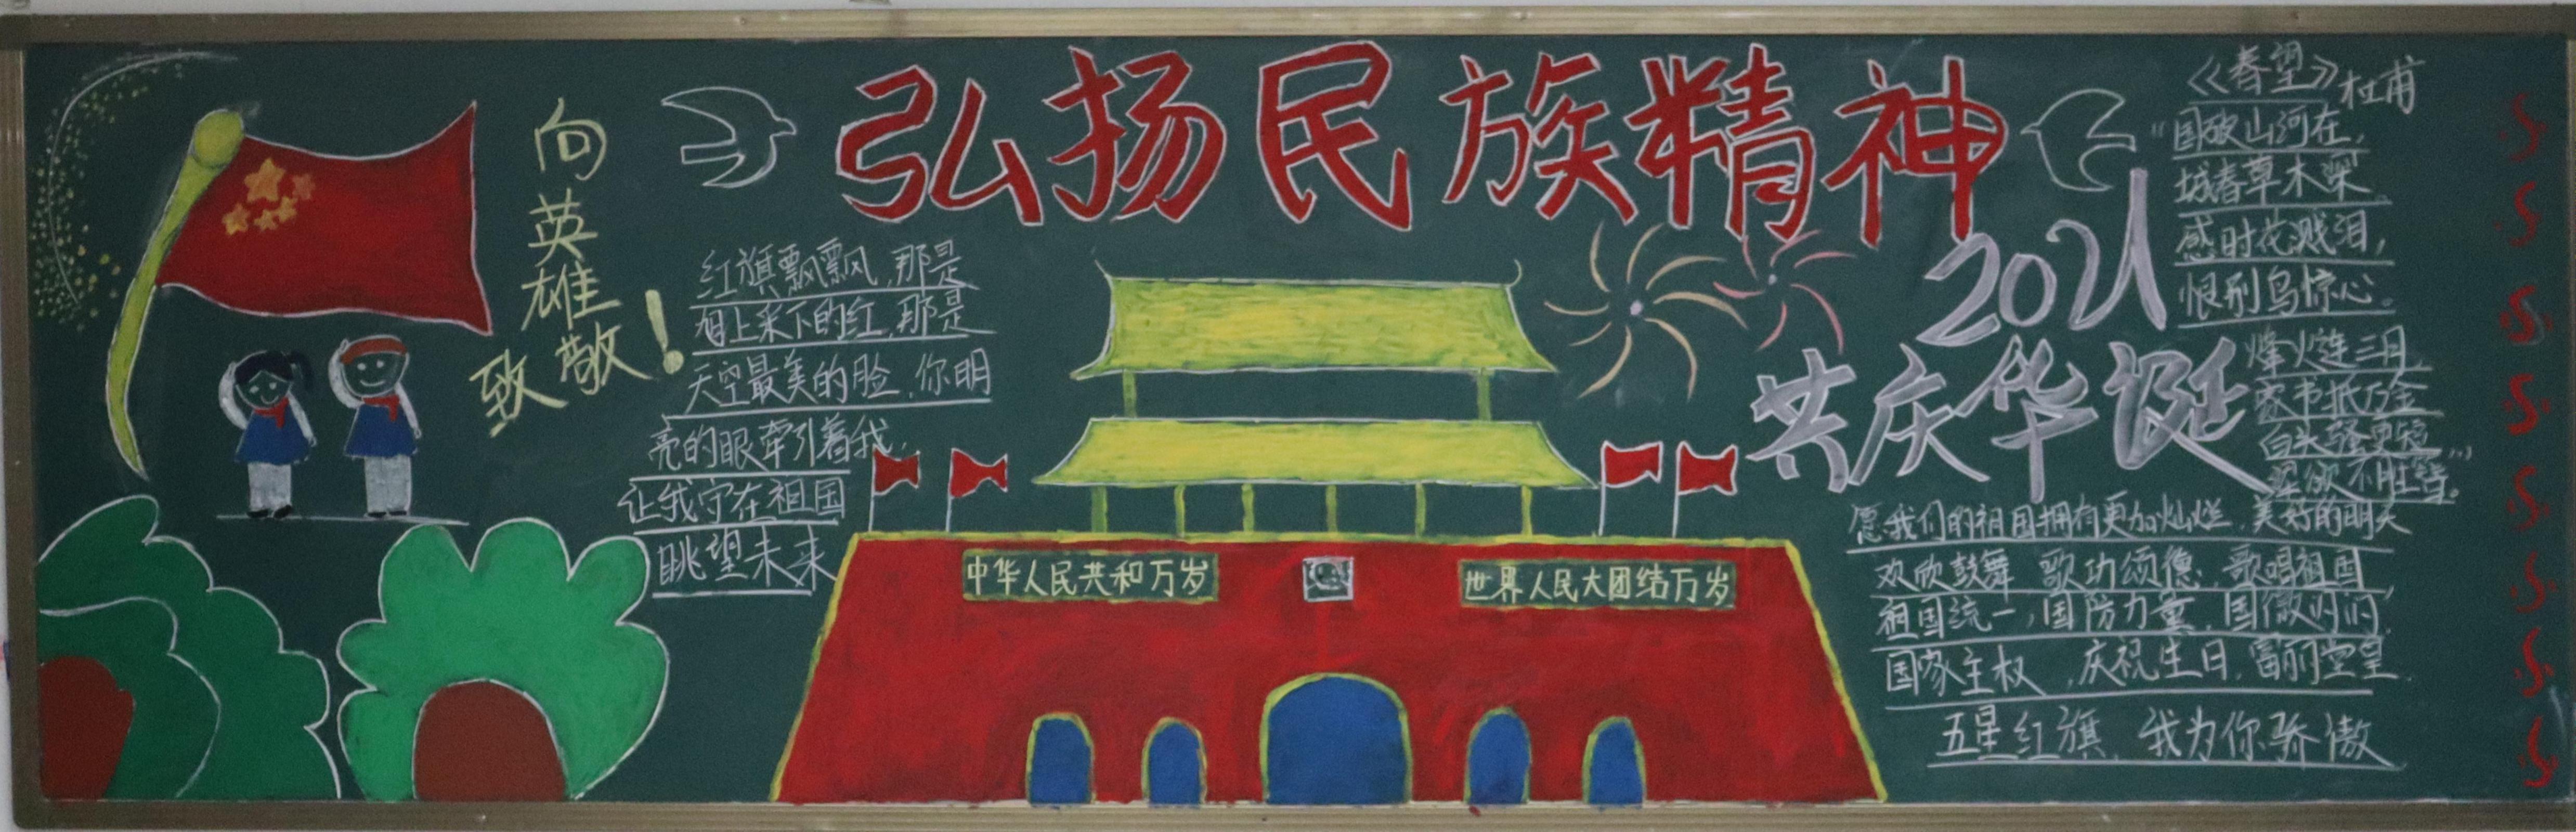 弘扬民族精神
向英雄致敬！
红旗飘飘,那是
旭上采下的红,那是
天空最美的脸,你明
亮的眼牵引着我,
让我守在祖国
眺望未来
中华人民共和万岁
世界人民大团结万岁
2021
共庆华诞
《春望》杜甫
“国破山河在,
城春草木深。
感时花溅泪,
恨别鸟惊心。
烽火连三月
家书抵万金
白头骚更短
浑欲不胜簪。”
愿我们的祖国拥有更加灿烂,美好的明天
欢欣鼓舞 歌功颂德,歌唱祖国,
祖国统一,国防力量,国徽闪闪,
国家主权,庆祝生日,富丽堂皇.
五星红旗,我为你骄傲